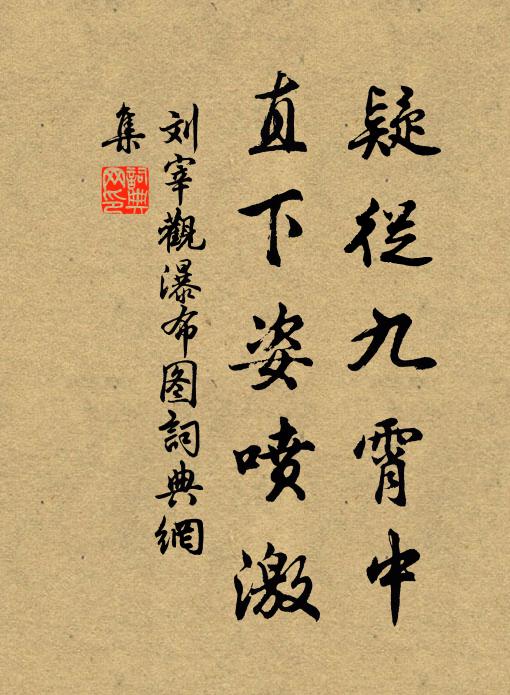 疑從九霄中
直下姿喷激
刘宰觀瀑布图詞典網
集
詞典
网印